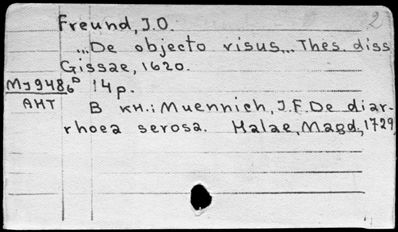 Freund, J.O. 2
...De objecto visus... Thes. diss
Gissae, 1620.
My948b D 14p.
АНТ В кн.: Muennich, J.F. De diar-
rhoea serosa. Halae, Magd, 1729